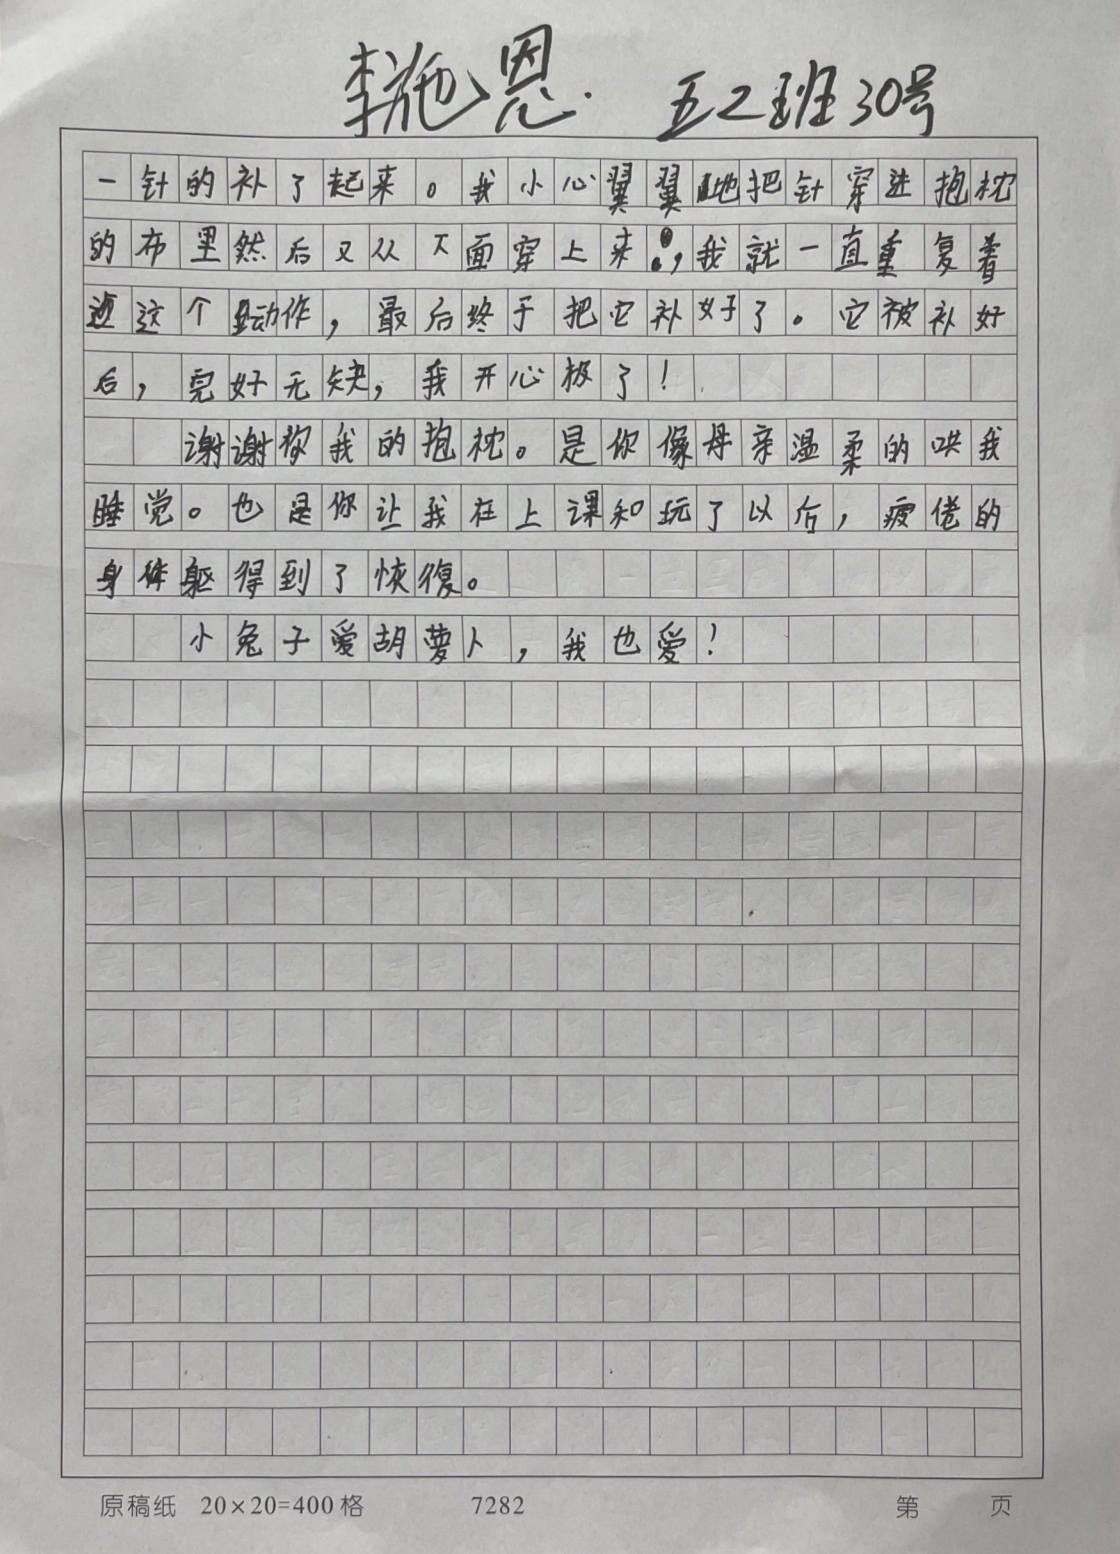 李施恩. 五2班30号
一针的补了起来。我小心翼翼地把针穿进抱枕
的布里然后又从下面穿上来,我就一直重复着
这个动作,最后终于把它补好了。它被补好
后,完好无缺,我开心极了!
谢谢你我的抱枕。是你像母亲温柔的哄我
睡觉。也是你让我在上课和玩了以后,疲倦的
身体躯得到了恢復。
小兔子爱胡萝卜,我也爱!
原稿纸 20×20=400格 7282 第 页